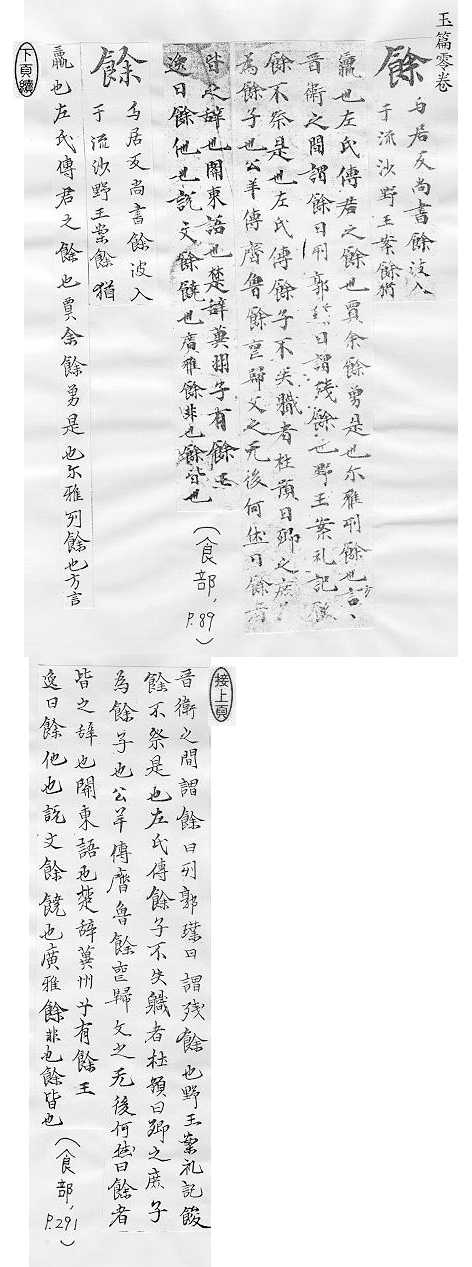 玉篇零卷
餘
与居反尚書餘波入
于流沙野王案餘猶
羸也左氏傳君之餘也賈余餘勇是也尒雅列餘也方言
晉衛之間謂餘曰列郭璞曰謂殘餘也野王案礼記餕
餘不祭是也左氏傳餘子不失軄者杜預曰卿之庶子
為餘子也公羊傳齊魯餘壹歸父之无後何休曰餘者
皆之辞也開東語也楚辞冀州兮有餘王
逸曰餘他也說文餘饒也廣雅餘非也餘皆也
(食部, P.89)
餘
与居反尚書餘波入
于流沙野王案餘猶
羸也左氏傳君之餘也賈余餘勇是也尒雅列餘也方言
下頁續
接上頁
晉衛之間謂餘曰列郭璞曰謂殘餘也野王案礼記餕
餘不祭是也左氏傳餘子不失軄者杜預曰卿之庶子
為餘子也公羊傳齊魯餘壹歸父之无後何休曰餘者
皆之辞也開東語也楚辞冀州兮有餘王
逸曰餘他也說文餘饒也廣雅餘非也餘皆也
(食部, P.291)